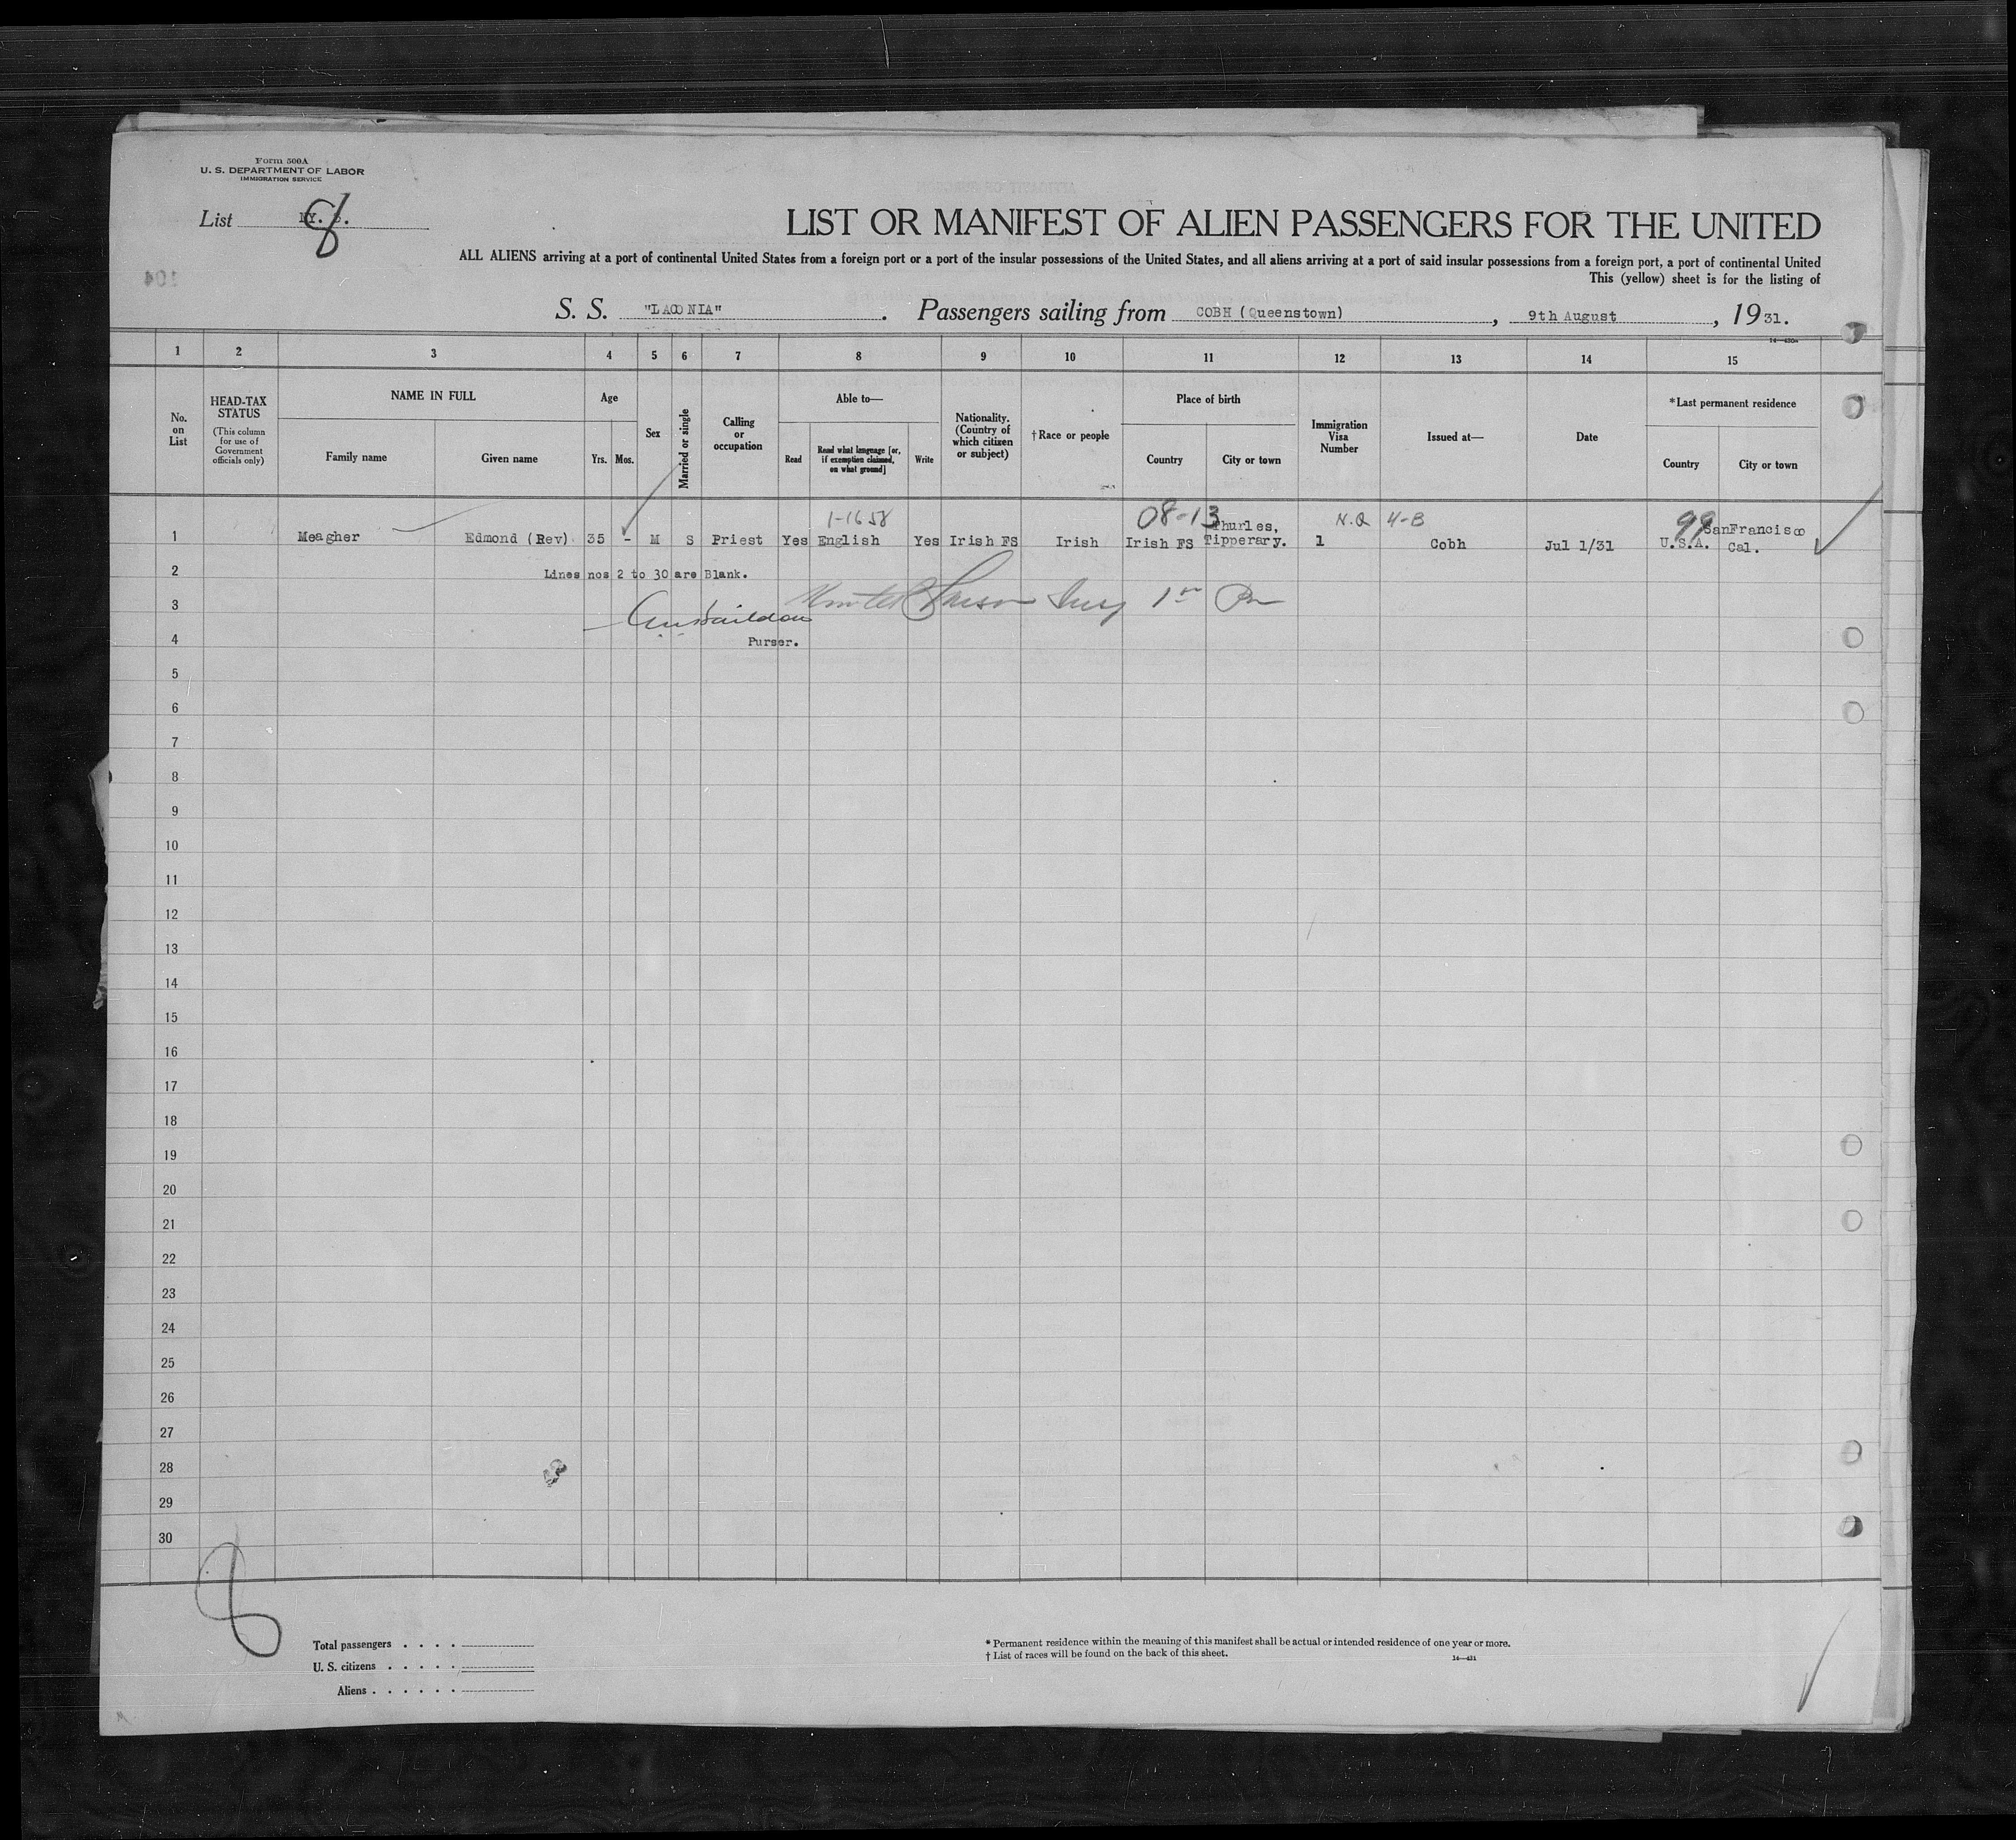 Form 500A
U. S. DEPARTMENT OF LABOR
IMMIGRATION SERVICE
List 8
LIST OR MANIFEST OF ALIEN PASSENGERS FOR THE UNITED
ALL ALIENS arriving at a port of continental United States from a foreign port or a port of the insular possessions of the United States, and all aliens arriving at a port of said insular possessions from a foreign port, a port of continental United
This (yellow) sheet is for the listing of
104
S. S. "LACONIA". Passengers sailing from COBH (Queenstown), 9th August, 1931.
14—430a
1 2 3 4 5 6 7 8 9 10 11 12 13 14 15
No. on List
HEAD-TAX STATUS
(This column for use of Government officials only)
NAME IN FULL
Family name Given name
Age
Yrs. Mos.
Sex
Married or single
Calling or occupation
Able to—
Read
Read what language [or, if exemption claimed, on what ground]
Write
Nationality. (Country of which citizen or subject)
†Race or people
Place of birth
Country City or town
Immigration Visa Number
Issued at—
Date
*Last permanent residence
Country City or town
1-1658 08-13 N.Q 4-B 99
1 Meagher Edmond (Rev) 35 - M S Priest Yes English Yes Irish FS Irish Irish FS Thurles, Tipperary. 1 Cobh Jul 1/31 U.S.A. SanFrancisco Cal.
2 Lines nos 2 to 30 are Blank.
3
4 Purser.
5
6
7
8
9
10
11
12
13
14
15
16
17
18
19
20
21
22
23
24
25
26
27
28
29
30
8
Total passengers . . . .
U. S. citizens . . . . .
Aliens . . . . . .
* Permanent residence within the meaning of this manifest shall be actual or intended residence of one year or more.
† List of races will be found on the back of this sheet.
14—431